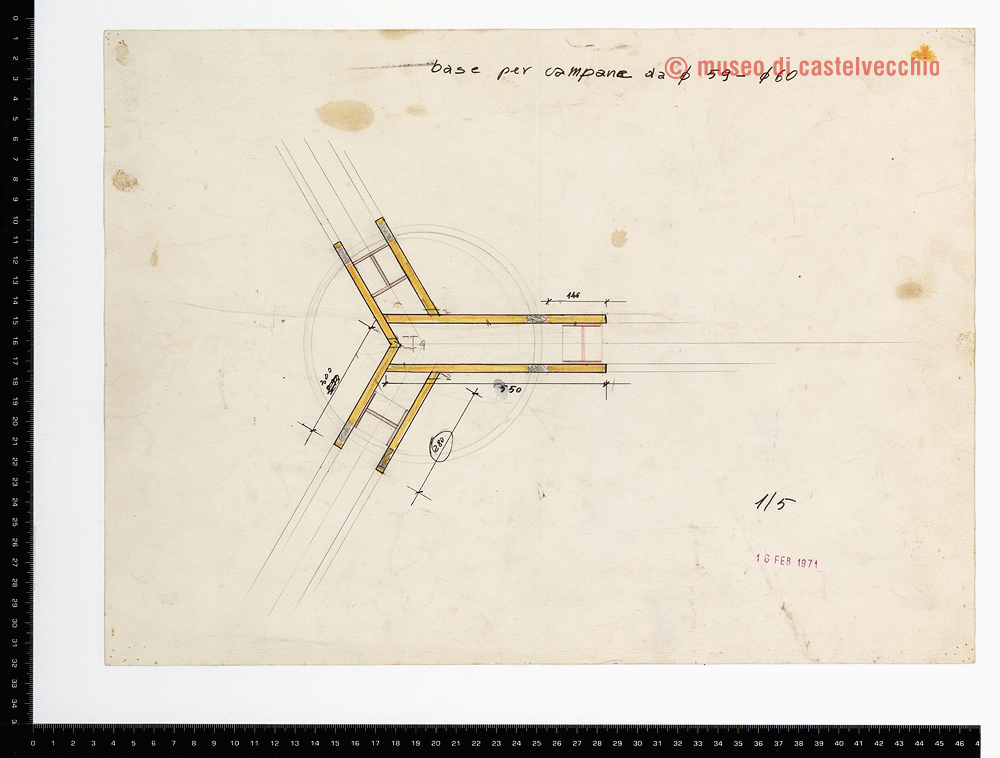 base per campane da ϕ 59 - ϕ 60
© museo di castelvecchio
146
550
200
280
1/5
16 FEB 1971
0
1
2
3
4
5
6
7
8
9
10
11
12
13
14
15
16
17
18
19
20
21
22
23
24
25
26
27
28
29
30
31
32
33
34
0 1 2 3 4 5 6 7 8 9 10 11 12 13 14 15 16 17 18 19 20 21 22 23 24 25 26 27 28 29 30 31 32 33 34 35 36 37 38 39 40 41 42 43 44 45 46